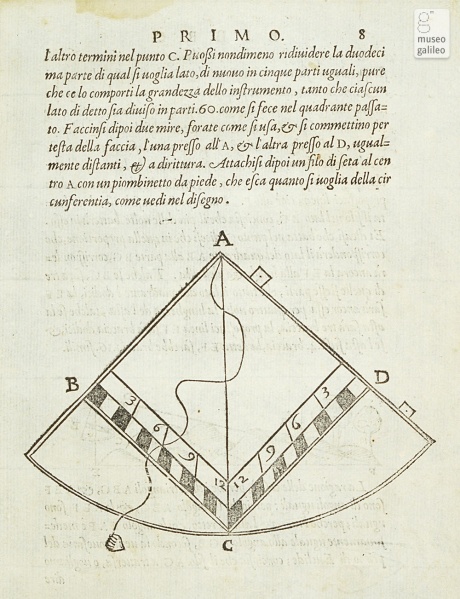 PRIMO. 8
museo
galileo
l'altro termini nel punto C. Puoßi nondimeno ridiuidere la duodeci
ma parte di qual si uoglia lato, di nuouo in cinque parti uguali, pure
che ce lo comporti la grandezza dello instrumento, tanto che ciascun
lato di detto sia diuiso in parti. 60. come si fece nel quadrante passa=
to. Faccinsi dipoi due mire, forate come si usa, & si commettino per
testa della faccia, l'una presso all'A, & l'altra presso al D, ugual=
mente distanti, & a dirittura. Attachisi dipoi un filo di seta al cen
tro A con un piombinetto da piede, che esca quanto si uoglia della cir
cunferentia, come uedi nel disegno.
A
B
D
3
6
9
12
12
9
6
3
C